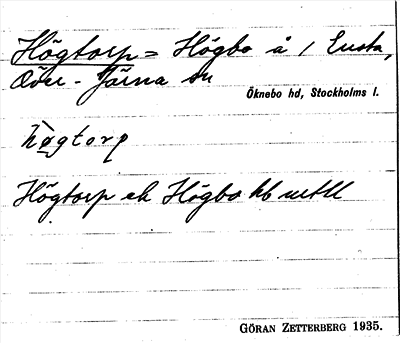 Högtorp = Högbo å / Ensta,
Över-Järna sn
Öknebo hd, Stockholms l.
hö̀gtorp
Högtorp el Högbo hb
GÖRAN ZETTERBERG 1935.